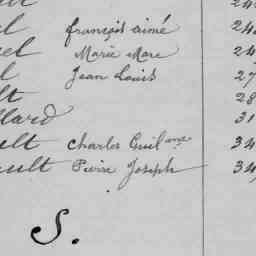 el françois aimé 24
el Marie Marc 24
l Jean Louis 27
lt 28
llard 31
ult Charles Guil ame 34
ault Pierre Joseph 34
S.